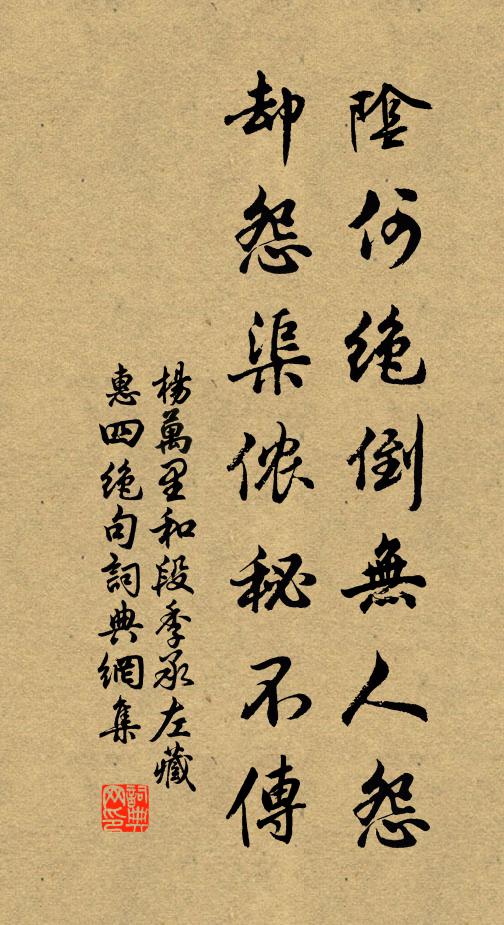 陰何絶倒無人怨
却怨渠儂秘不傳
楊萬里和段季承左藏
惠四絶句詞典網集
詞典網印